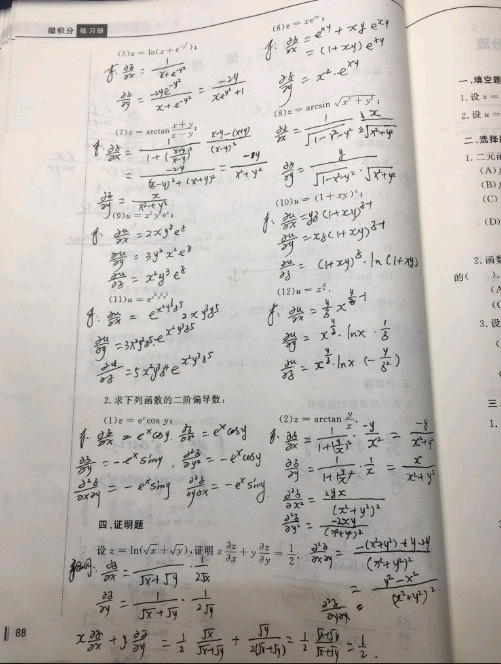 微积分 练习册
(5)z = ln(x + e^{-y²});
解. ∂z/∂x = 1/(x+e^{-y²})
∂z/∂y = -2ye^{-y²}/(x+e^{-y²}) = -2y/(xe^{y²}+1)
(6)z = xe^{xy};
解: ∂z/∂x = e^{xy} + xy e^{xy}
= (1+xy) e^{xy}
∂z/∂y = x²·e^{xy}
(7)z = arctan (x+y)/(x−y);
= -2y/((x-y)²+(x+y)²)
∂z/∂y = x/(x²+y²)
(8)z = arcsin √(x²+y²);
∂z/∂y = y/(√(1-x²-y²)·√(x²+y²))
(9)u = x²y³e^z;
解. ∂u/∂x = 2xy³e^z
∂u/∂y = 3y²x²e^z
∂u/∂z = x²y³e^z
(10)u = (1+xy)^z;
解. ∂u/∂x = yz(1+xy)^{z-1}
∂u/∂y = xz(1+xy)^{z-1}
∂u/∂z = (1+xy)^z · ln(1+xy)
(11)u = e^{x²y³z⁵};
解. ∂u/∂x = e^{x²y³z⁵} 2xy³z⁵
∂u/∂y = 3x²y²z⁵ e^{x²y³z⁵}
∂u/∂z = 5x²y³z⁴ e^{x²y³z⁵}
(12)u = x^{y/z}.
解. ∂u/∂x = y/z x^{y/z-1}
∂u/∂y = x^{y/z}·lnx·1/z
∂u/∂z = x^{y/z}·lnx (-y/z²)
2.求下列函数的二阶偏导数:
(1)z = e^x cos y;
解. ∂z/∂x = e^x cosy. ∂²z/∂x² = e^x cosy
∂z/∂y = -e^x siny, ∂²z/∂y² = -e^x cosy
∂²z/∂x∂y = -e^x siny ∂²z/∂y∂x = -e^x siny
(2)z = arctan y/x.
解. ∂z/∂x = 1/(1+(y/x)²) · -y/x² = -y/(x²+y²)
∂z/∂y = 1/(1+(y/x)²) · 1/x = x/(x²+y²)
∂²z/∂x² = 2yx/(x²+y²)²
∂²z/∂y² = -2xy/(x²+y²)²
四、证明题
设 z = ln(√x + √y),证明 x ∂z/∂x + y ∂z/∂y = 1/2.
∂²z/∂x∂y = (-(x²+y²)+y·2y)/(x²+y²)²
= (y²-x²)/(x²+y²)²
∂z/∂x = 1/(√x+√y) · 1/(2√x)
∂z/∂y = 1/(√x+√y) · 1/(2√y)
x ∂z/∂x + y ∂z/∂y = 1/2 √x/(√x+√y) + √y/(2(√x+√y)) = 1/2 (√x+√y)/(√x+√y) = 1/2.
88
一、填空题
1.设 z =
2.设 u =
二、选择
1.二元
(A)
(B)
(C)
(D)
2.函数
的( ).
3.设
三
1.